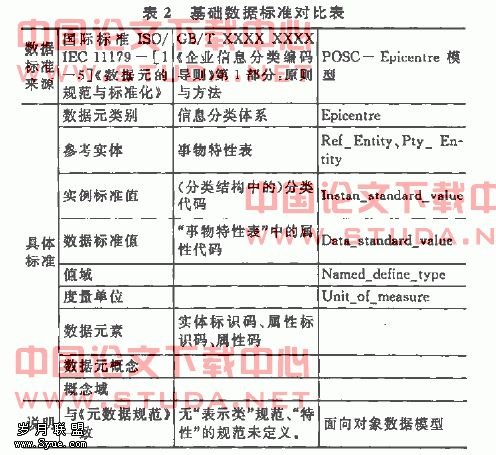 表 2 基础数据标准对比表
数据
标准
来源
国际标准 ISO/
IEC 11179－[1
－5]《数据元的
规范与标准化》
GB/T XXXX XXXX
《企业信息分类编码
导则》第 1 部分:原则
与方法
POSC－Epicentre 模
型
具体
标准
数据元类别
信息分类体系
Epicentre
参考实体
事物特性表
Ref_Entity、Pty_ En-
tity
实例标准值
(分类结构中的)分类
代码
Instan_standard_value
数据标准值
“事物特性表”中的属
性代码
Data_standard_value
值域
Named_define_type
度量单位
Unit_of_measure
数据元素
实体标识码、属性标
识码、属性码
数据元概念
概念域
说明
与《元数据规范》
致
无“表示类”规范、“特
性”的规范未定义。
面向对象数据模型
中国论文下载中心
HTTP://WWW.STUDA.NET
中国论文下载中心
HTTP://WWW.STUDA.NET
岁月联盟
www.Syue.com